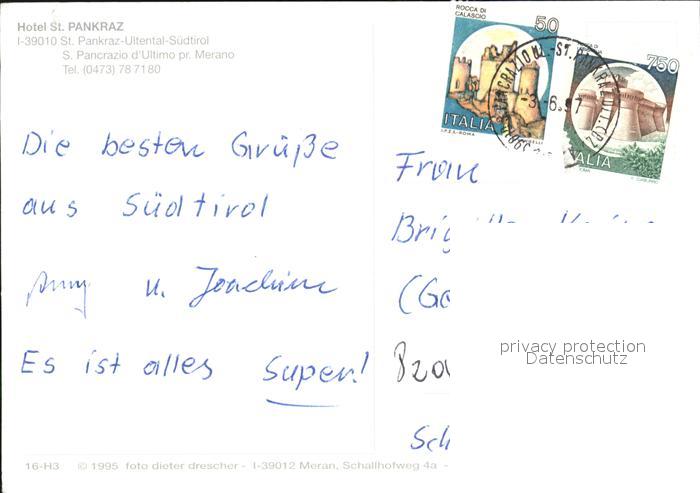 Hotel St. PANKRAZ
I-39010 St. Pankraz-Ultental-Südtirol
S. Pancrazio d'Ultimo pr. Merano
Tel. (0473) 787180
ROCCA DI
CALASCIO
50
ITALIA
I.P.Z.S.-ROMA
750
ITALIA
Die besten Grüße
aus Südtirol
u. Joachim
Es ist alles Super!
Frau
privacy protection
Datenschutz
16-H3 © 1995 foto dieter drescher - I-39012 Meran, Schallhofweg 4a -